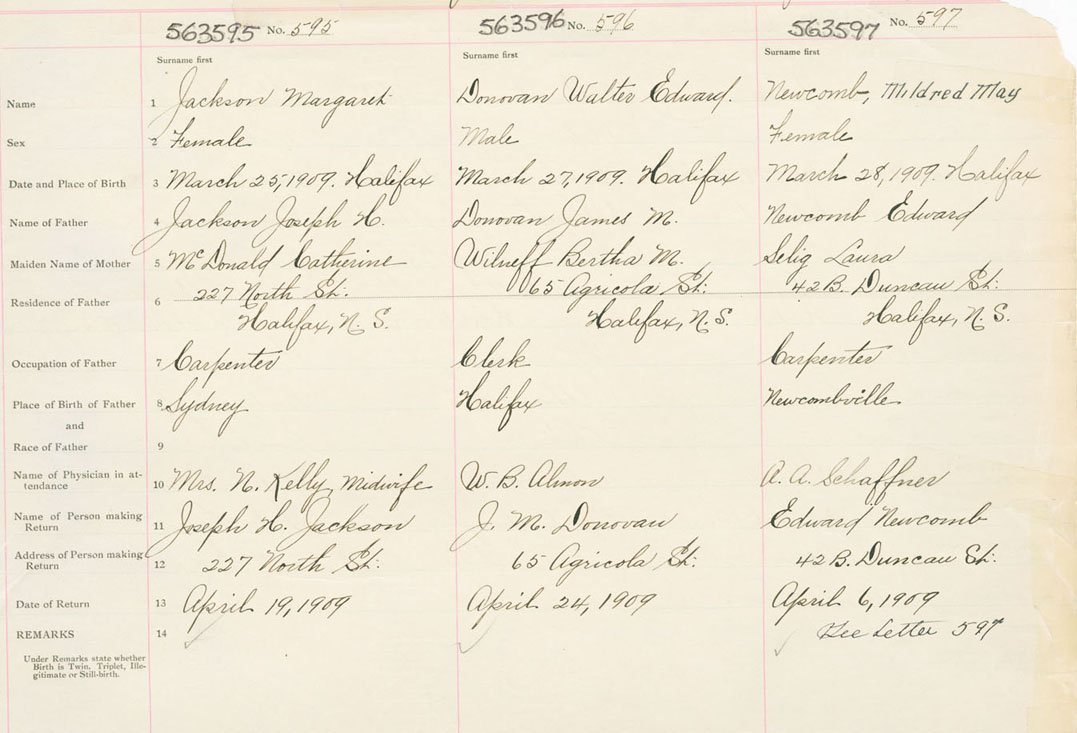 563595 No. 595 563596 No. 596 563597 No. 597
Surname first Surname first Surname first
Name 1 Jackson Margaret Donovan Walter Edward. Newcomb, Mildred May
Sex 2 Female Male Female
Date and Place of Birth 3 March 25, 1909. Halifax March 27, 1909. Halifax March 28, 1909. Halifax
Name of Father 4 Jackson Joseph H. Donovan James M. Newcomb Edward
Maiden Name of Mother 5 McDonald Catherine Wilneff Bertha M. Selig Laura
Residence of Father 6 227 North St. 65 Agricola St. 42 B. Duncan St.
Halifax, N. S. Halifax, N. S. Halifax, N. S.
Occupation of Father 7 Carpenter Clerk Carpenter
Place of Birth of Father 8 Sydney Halifax Newcombville
and
Race of Father 9
Name of Physician in at-
tendance 10 Mrs. N. Kelly, Midwife W. B. Almon A. A. Schaffner
Name of Person making
Return 11 Joseph H. Jackson J. M. Donovan Edward Newcomb
Address of Person making
Return 12 227 North St. 65 Agricola St. 42 B. Duncan St.
Date of Return 13 April 19, 1909 April 24, 1909 April 6, 1909
REMARKS 14 See Letter 597
Under Remarks state whether
Birth is Twin, Triplet, Ille-
gitimate or Still-birth.